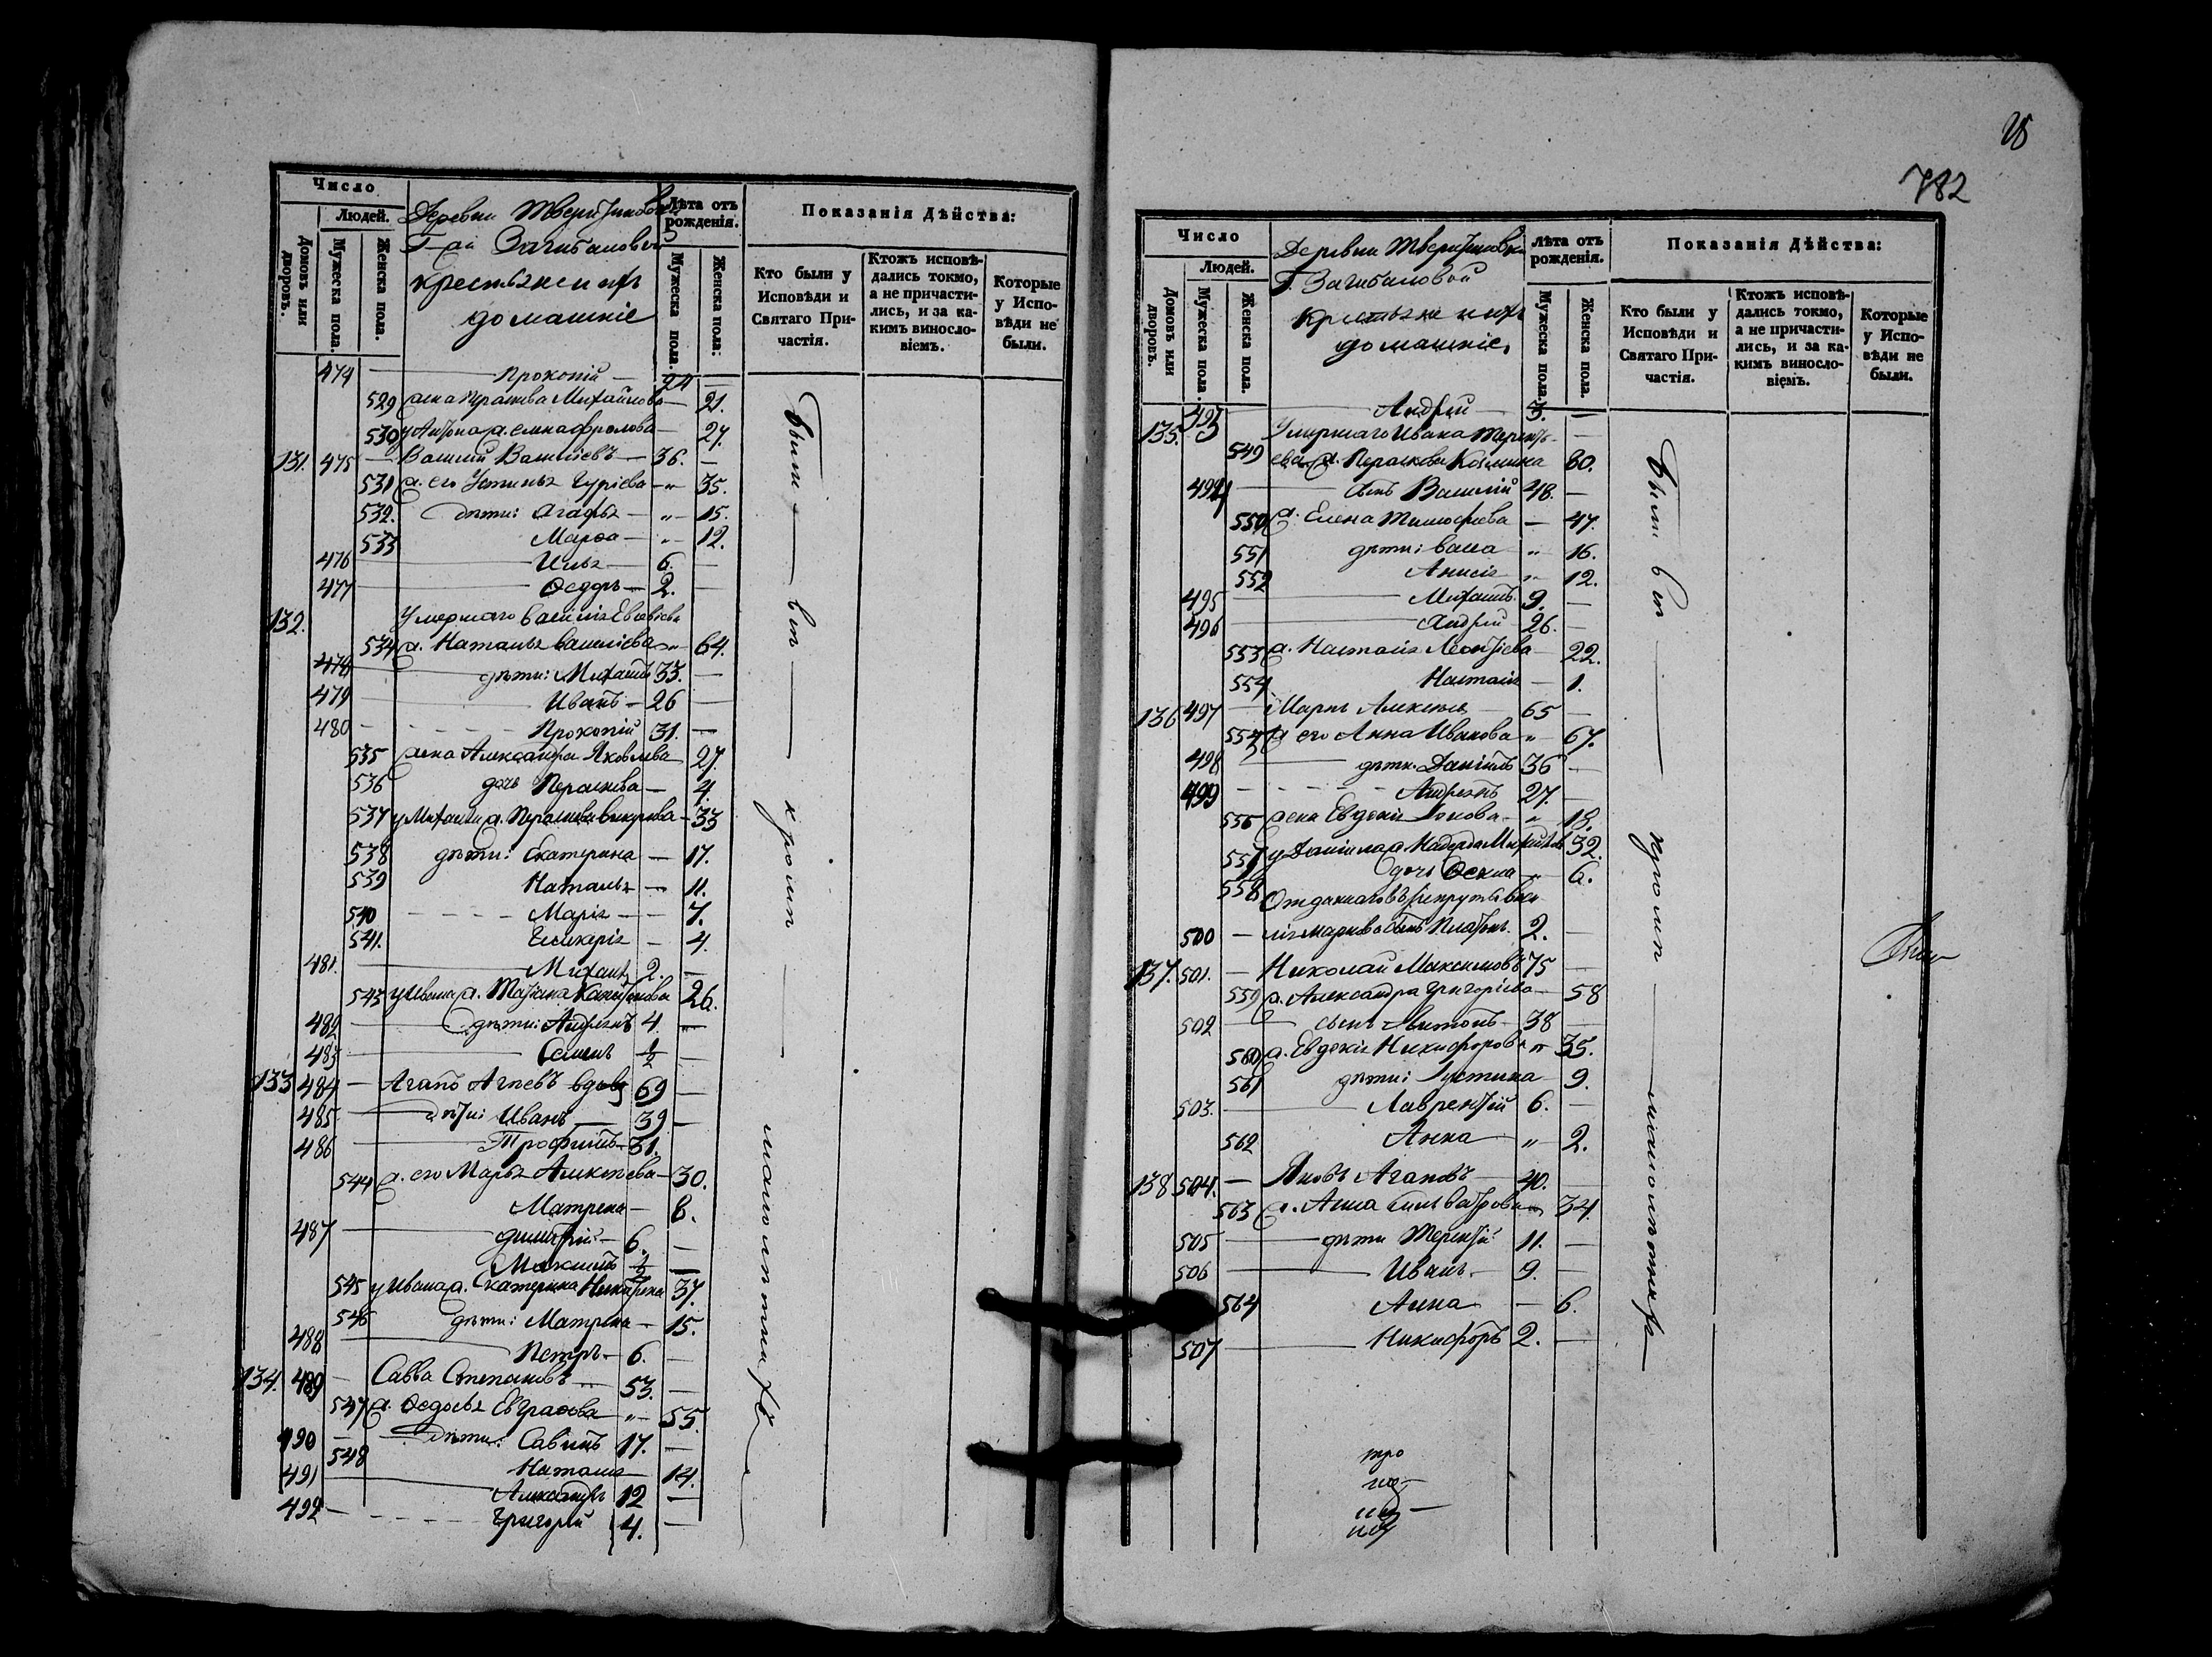 Число
Людей.
Домовъ или дворовъ.
Мужеска пола.
Женска пола.
Деревни
Г-жи Загибаловой
крестьяне и ихъ
домашніе
Лѣта отъ рожденія.
Мужеска пола.
Женска пола:
Показанія Дѣйства:
Кто были у Исповѣди и Святаго Причастія.
Ктожъ исповѣдались токмо, а не причастились, и за какимъ винословіемъ.
Которые у Исповѣди не были.
474 — Прокопій — 24 —
529 жена Михайлова — 21.
530 у Антона ж. Фролова — 27.
131. 475 — Василій Васильевъ — 36. —
531 ж. его Устинья Гурiева — " — 35.
532. дѣти: Агафья — " — 15.
533 Марѳа — " — 12.
476 — Илья — 6. —
477 — Ѳедоръ — 2. —
132. Умершаго Василія
534 ж. Наталья Васильева — " 64.
478 — дѣти: Михаилъ 33. —
479 — Иванъ — 26 —
480 — Прокопій 31. —
535 жена Александра Яковлева 27.
536 дочь Параскева — 4.
537 у Михаила ж. Параскева — 33
538 дѣти: Екатерина — 17.
539 Наталья — 11.
540 — Марія — 7.
541. Гликерія — 4.
481. — Михаилъ 2. —
543 у Ивана ж. Татіана 26.
482 — дѣти: Андреянъ 4. "
483 — Семенъ ½ —
133 484 — Агапъ вдовъ 69 —
485 — дѣти: Иванъ — 39 —
486 — Трофимъ — 31.
544 ж. его Марья Алексѣева — 30.
Матрена — 8.
487 — Димитрій — 6. —
Максимъ ½ —
545 у Ивана ж. Екатерина 37.
546 дѣти: Матрена — 15.
488 — Петръ — 6. —
134. 489 — Савва Степановъ — 53. —
547 ж. Ѳедосья — " — 55.
490 — дѣти: Савинъ 17. —
548 Наталія 14.
491 — Александръ 12 —
492 — Григорій 4. —
Были — вси — кромѣ — малолѣтнихъ
782
Число
Людей.
Домовъ или дворовъ.
Мужеска пола.
Женска пола.
Деревни
Г. Загибаловой
крестьяне и ихъ
домашніе,
Лѣта отъ рожденія.
Мужеска пола.
Женска пола.
Показанія Дѣйства:
Кто были у Исповѣди и Святаго Причастія.
Ктожъ исповѣдались токмо, а не причастились, и за какимъ винословіемъ.
Которые у Исповѣди не были.
493 — Андрей — 3. —
135. Умершаго Ивана Терентьева
549 ж. Параскева 80.
494 — сынъ Василій 48. —
550 ж. Елена Тимоѳеева — 47.
551 дѣти: Васса " 16.
552 Анисія " 12.
495 — Михаилъ 9. —
496 — Андрей 26. —
553 ж. Настасія Леонтіева 22.
554 Настасія — 1.
136 497 — Маркъ Алексѣевъ 65 —
555 ж его Анна Иванова " 67.
498 — дѣти: Даніилъ 36 —
499 — Андреянъ 27. —
556 жена Евдокія — " 18.
557 у Даніила ж. Надежда 32.
558 дочь Ѳекла " 6.
Отданнаго въ рекруты Василія
500 — Маркова сынъ Платонъ 2. —
137. 501. — Николай Максимовъ 75 —
559 ж. Александра Григорьева — 58
502 — сынъ Антонъ — 38 —
560 ж. Евдокія Никифорова " 35.
561 дѣти: Іустина 9.
503. — Лаврентій 6. —
562 Анна " 2.
138 504. — Яковъ Агаповъ — 40. —
563 ж. Анна 34.
505 — дѣти Терентій 11. —
506 — Иванъ 9. —
564 Анна — 6.
507 — Никифоръ 2. —
Были вси — кромѣ — малолѣтнихъ